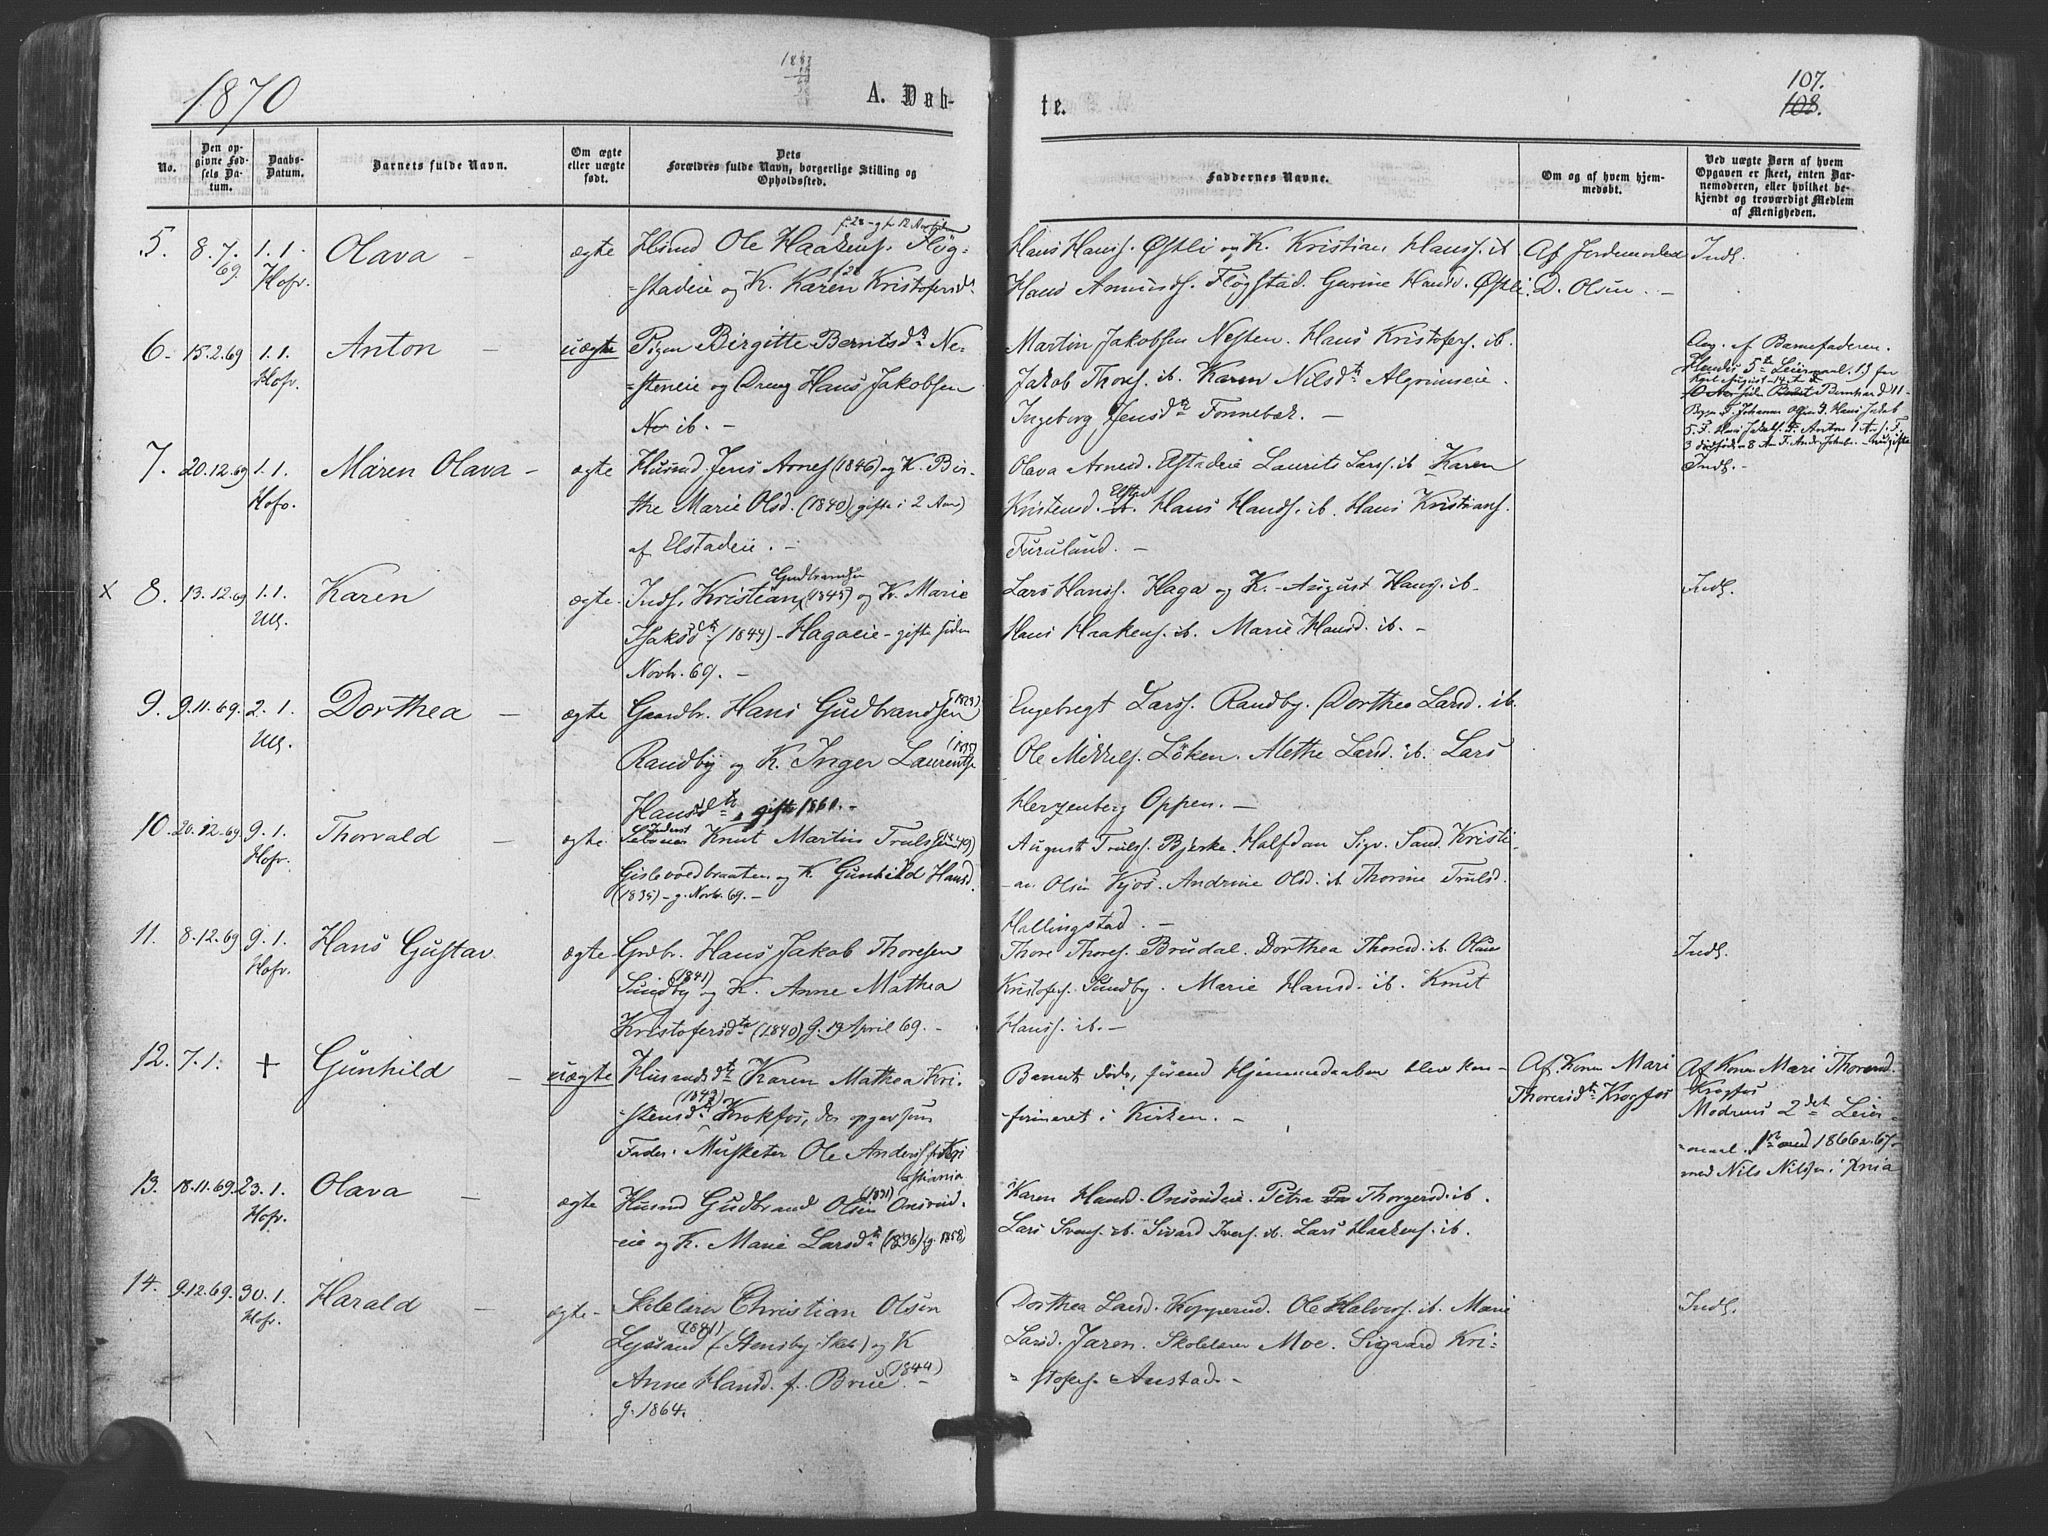 1870
A. Døb-
te.
107.
108.
No.
Den op-
givne Fød-
sels Da-
tum.
Daabs-
Datum.
Barnets fulde Navn.
Om ægte
eller uægte
født.
Dets
Forældres fulde Navn, borgerlige Stilling og
Opholdssted.
Faddernes Navne.
Om og af hvem hjem-
medøbt.
Ved uægte Børn af hvem
Opgaven er skeet, enten Bar-
nemoderen, eller hvilket be-
kjendt og troværdigt Medlem
af Menigheden.
5. 8.7.69. 1.1 Hofv. Olava – ægte
Husmd Ole Haakens. Fløg-
=stadeie og K. Karen Kristofersd.
Hans Hanss. Østli og K. Kristian Hanss. ib
Hans Amunds. Fløgstad. Gurine Hansd. Østli.
Af Jordemoder
D. Olsen. –
Indl.
6. 15.2.69 1.1. Hofv. Anton – uægte
Pigen Birgitte Berntsdtr Ne-
=steneie og Dreng Hans Jakobsen
ib. –
Martin Jakobsen Nesten. Hans Kristofers. ib.
Jakob Thores. ib. Karen Nilsdtr Algrimseie.
Ingeborg Jensdtr Tonnebæk. –
Ang. af Barnefaderen.
Hendes 5te Leiermaal. 1) før
7. 20.12.69 1.1. Hofv. Maren Olava – ægte
Husmd Jens Arnes (1846) og K. Bir-
the Marie Olsd. (1840) (gifte i 2 Aar)
af Elstadeie. –
Olava Arnesd. Elstadeie Laurits Larss. ib Karen
Kristensd. Elstad Hans Hands. ib. Hans Kristians.
Furuland. –
Indl. –
x 8. 13.12.69 1.1. Ull. Karen ægte
Inds. Kristian Gudbrandsen (1845) og K. Marie
Isaksdtr (1844) – Hagaeie – gifte siden
Novbr. 69. –
Lars Hanss. Haga og K. August Hanss. ib.
Hans Haakens. ib. Marie Hansd. ib. –
Indl.
9. 9.11.69. 2.1 Ull. Dorthea – ægte
Gaardbr. Hans Gudbrandsen (1829)
Randby og K. Inger Laurentse (1835)
Hansdtr, gifte 1860. –
Engebregt Larss. Randby. Dorthea Larsd. ib.
Ole Mikkels. Löken. Alethe Larsd. ib. Lars
Herzenberg Oppen. –
10. 20.12.69 9.1. Hofv. Thorvald – ægte
Inderst Knut Martin Trulssen (1849)
Gislevoldbraaten og K. Gunhild Hansd.
(1835) – g. Novbr. 69. –
August Truls. Bjerke. Halfdan Sigv. Sand. Kristi-
-an Olsen Kjos. Andrine Olsd. ib. Thorine Trulsd.
Hallingstad. –
11. 8.12.69 9.1. Hofv. Hans Gustav ægte
Grdbr. Hans Jakob Thoresen
Sundby (1841) og K. Anne Mathea
Kristofersdtr (1840) g. 19 April 69. –
Thore Thores. Brudal. Dorthea Thoresd. ib. Olaus
Kristofers. Sundby. Marie Hansd. ib. Knut
Hanss. ib. –
Indl.
12. 7.1. + Gunhild – uægte
Husmdsdtr Karen Mathea Kri-
=stensdtr (1842) Krokfos, der opgav som
Fader: Musketer Ole Anders. fra Kri
stiania
Barnet døde, førend Hjemmedaaben blev kon-
firmeret i Kirken. –
Af Konen Mari
Thoresdtr Krogfos
Af Konen Mari Thoresd.
Krogfos
Modrens 2det Leier-
=maal. 1ste med 1866 a 67
med Nils Nilsen i Xnia
13. 18.11.69 23.1. Hofv. Olava – ægte
Husmd Gudbrand Olsen (1831) Onsrud-
eie og K. Marie Larsdtr (1836) (g. 1858)
Karen Hansd. Onsrudeie. Petra Thorgersd. ib.
Lars Svens. ib. Sivard Ivers. ib. Lars Haakens. ib.
14. 9.12.69. 30.1. Hofv. Harald – ægte
Skolelærer Christian Olsen
Lysland (1841) (Stensby Skole) og K
Anne Hansd. f. Brue. (1844) –
g. 1864.
Dorthea Larsd. Kopperud. Ole Halvors. ib. Marie
Larsd. Jaren. Skolelærer Moe. Sigvard Kri-
=stofers. Austad. –
Indl.